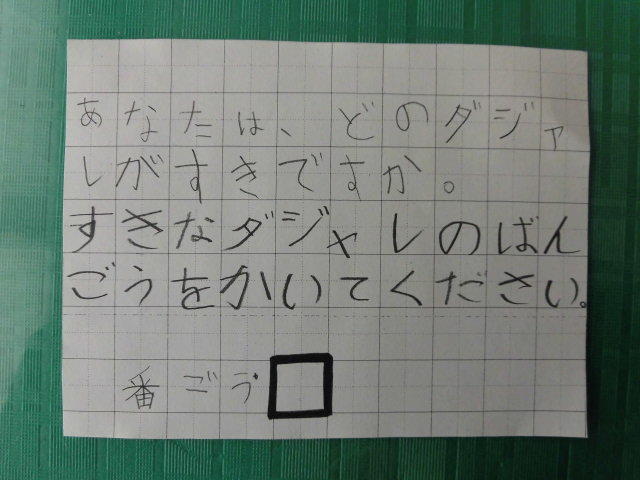 あなたは、どのダジャ
レがすきですか。
すきなダジャレのばん
ごうをかいてください。
番ごう